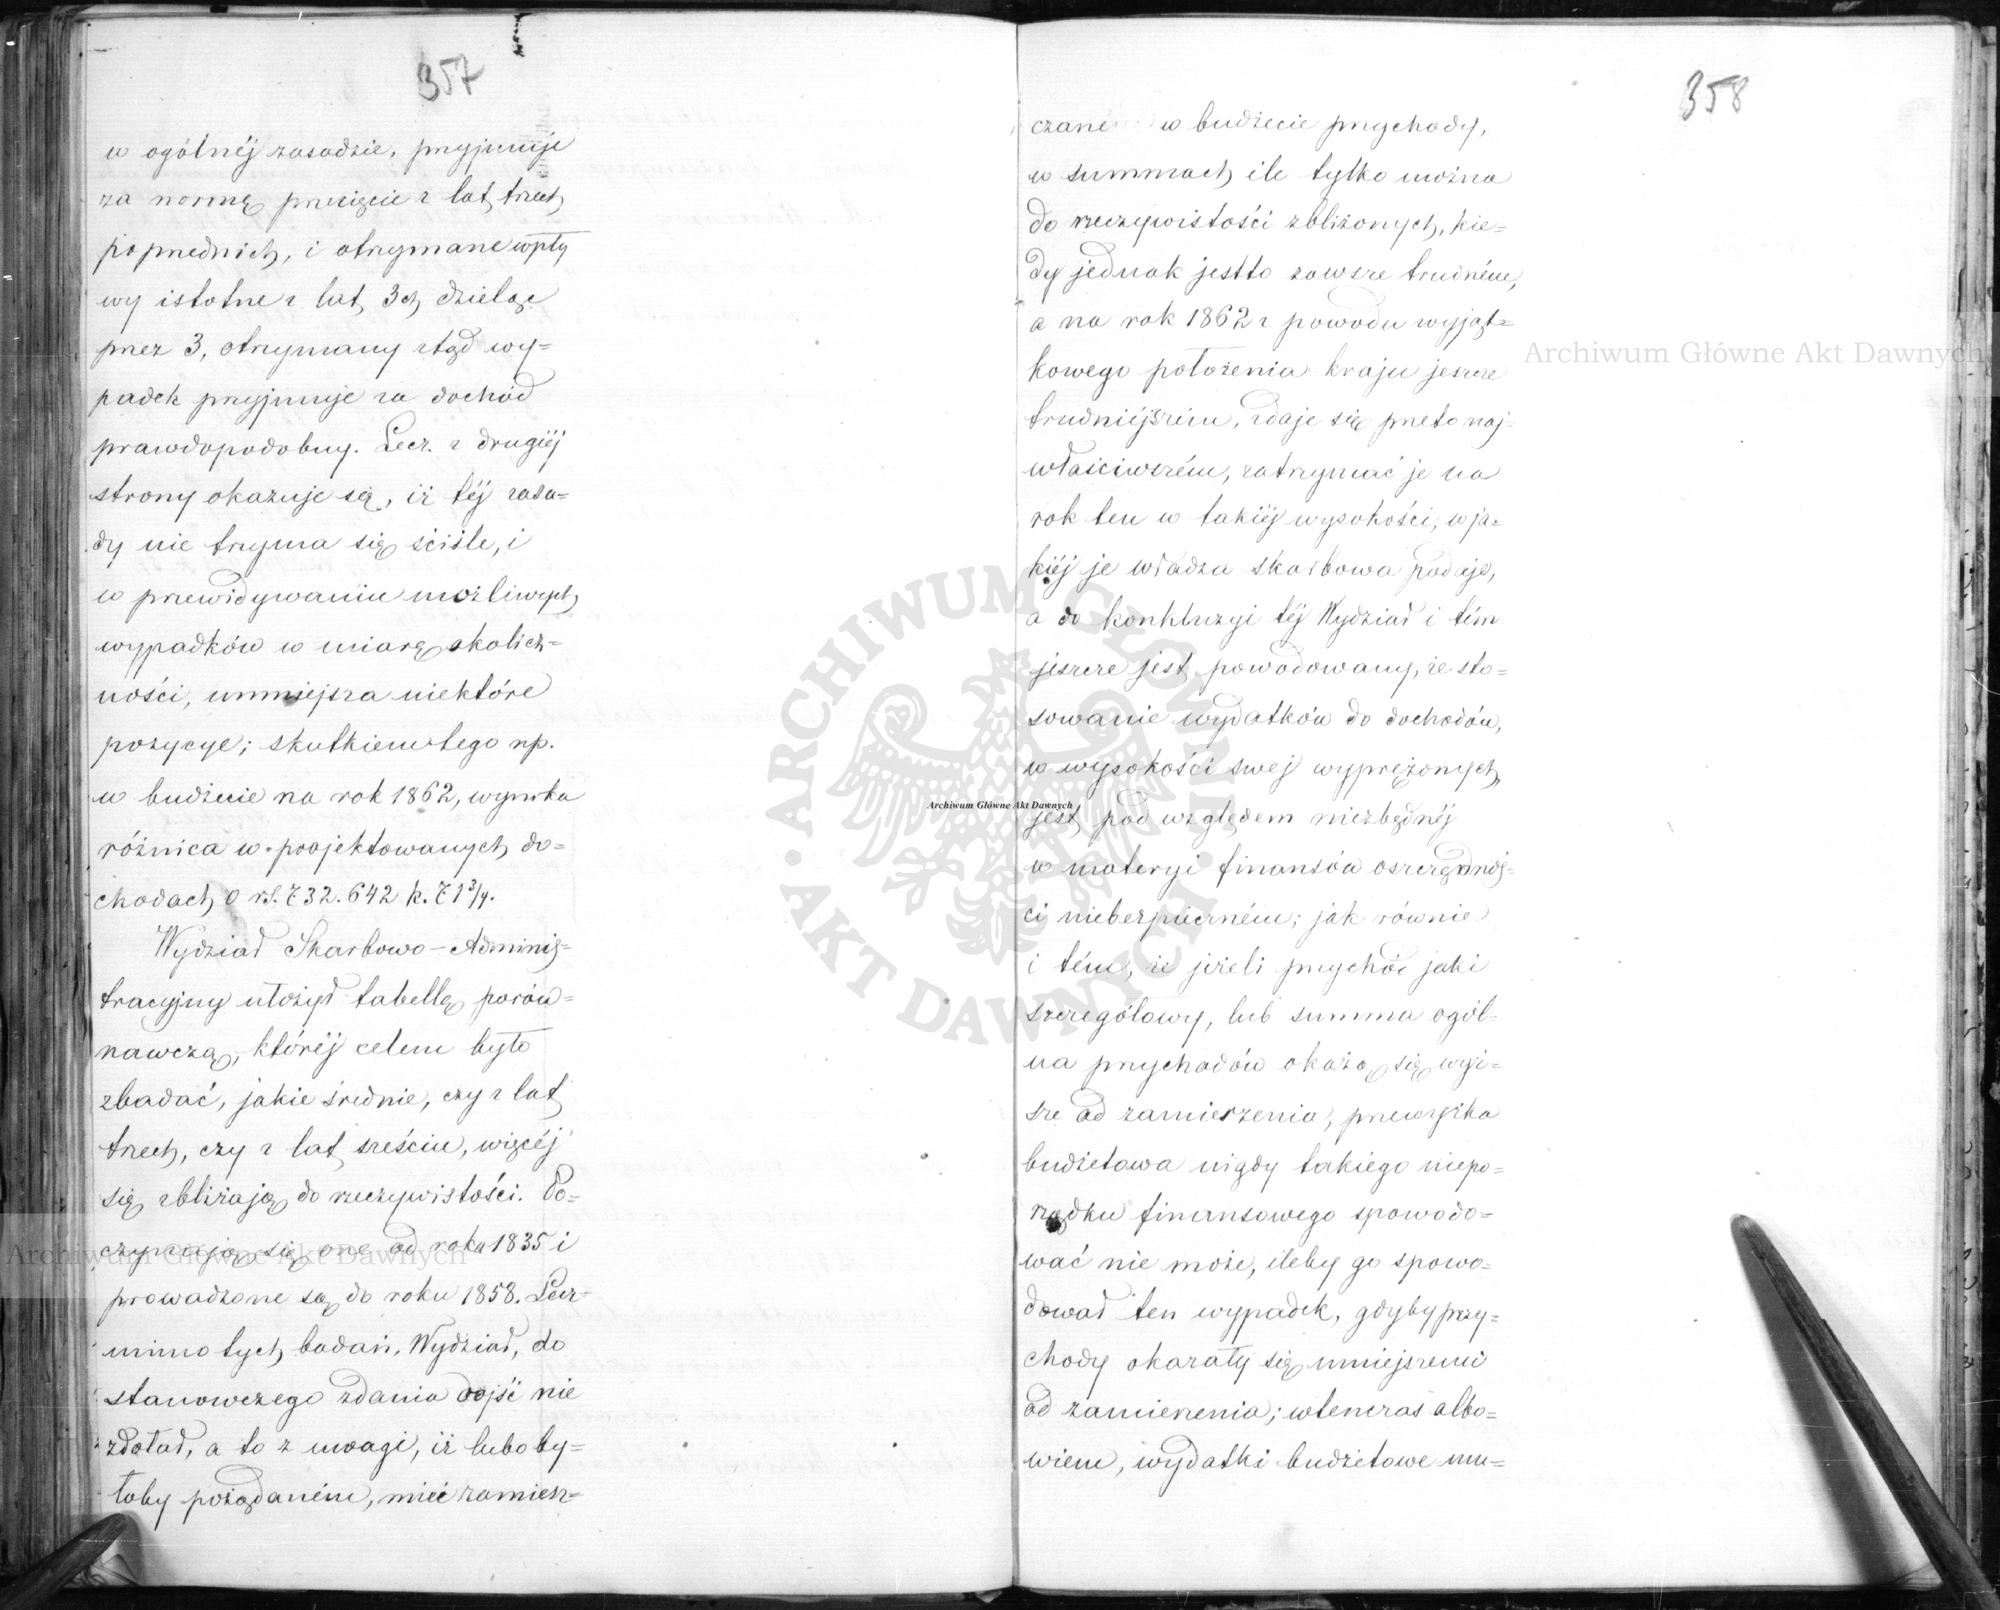 357
w ogólnéj zasadzie, przyjmuje
za normę przecięcie z lat trzech
poprzednich, i otrzymane wpły
wy istotne z lat 3ch dzieląc
przez 3, otrzymany ztąd wy=
padek przyjmuje za dochód
prawdopodobny. Lecz z drugiéj
strony okazuje się, iż téj zasa=
dy nie trzyma się ściśle, i
w przewidywaniu możliwych
wypadków w miarę okolicz=
ności, umniejsza niektóre
pozycye; skutkiem tego np.
w budżecie na rok 1862, wynika
różnica w projektowanych do=
chodach o rs. 732.642 k. 71 3/4.
Wydział Skarbowo-Adminis=
tracyjny ułożył tabellę porów=
nawczą, któréj celem było
zbadać, jakie średnie, czy z lat
trzech, czy z lat sześciu, więcéj
się zbliżają do rzeczywistości. Po=
czynają się one od roku 1835 i
prowadzone są do roku 1858. Lecz
mimo tych badań, Wydział, do
stanowczego zdania dojść nie
zdołał, a to z uwagi, iż lubo by=
łoby pożądaném, mieć zamiesz=
358
czane w budżecie przychody,
w summach ile tylko można
do rzeczywistości zbliżonych, kie=
dy jednak jestto zawsze trudném,
a na rok 1862 z powodu wyjąt=
kowego położenia kraju jeszcze
trudniéjszém, zdaje się przeto naj=
właściwszém, zatrzymać je na
rok ten w takiéj wysokości, w ja=
kiéj je władza skarbowa podaje,
a do konkluzyi téj Wydział i tém
jeszcze jest powodowany, że sto=
sowanie wydatków do dochodów,
w wysokości swej wyprężonych,
jest pod względem niezbędnéj
w materyi finansów oszczędnoś=
ci niebezpieczném; jak równie
i tém, że jeżeli przychód jaki
szczegółowy, lub summa ogól=
na przychodów okażą się wyż=
sze od zamieszczenia, przewyżka
budżetowa nigdy takiego niepo=
rządku finansowego spowodo=
wać nie może, ileby go spowo=
dował ten wypadek, gdyby przy=
chody okazały się mniejszemi
od zamierzenia; wtenczas albo=
wiem, wydatki budżetowe mu=
Archiwum Główne Akt Dawnych
Archiwum Główne Akt Dawnych
Archiwum Główne Akt Dawnych
ARCHIWUM GŁÓWNE AKT DAWNYCH